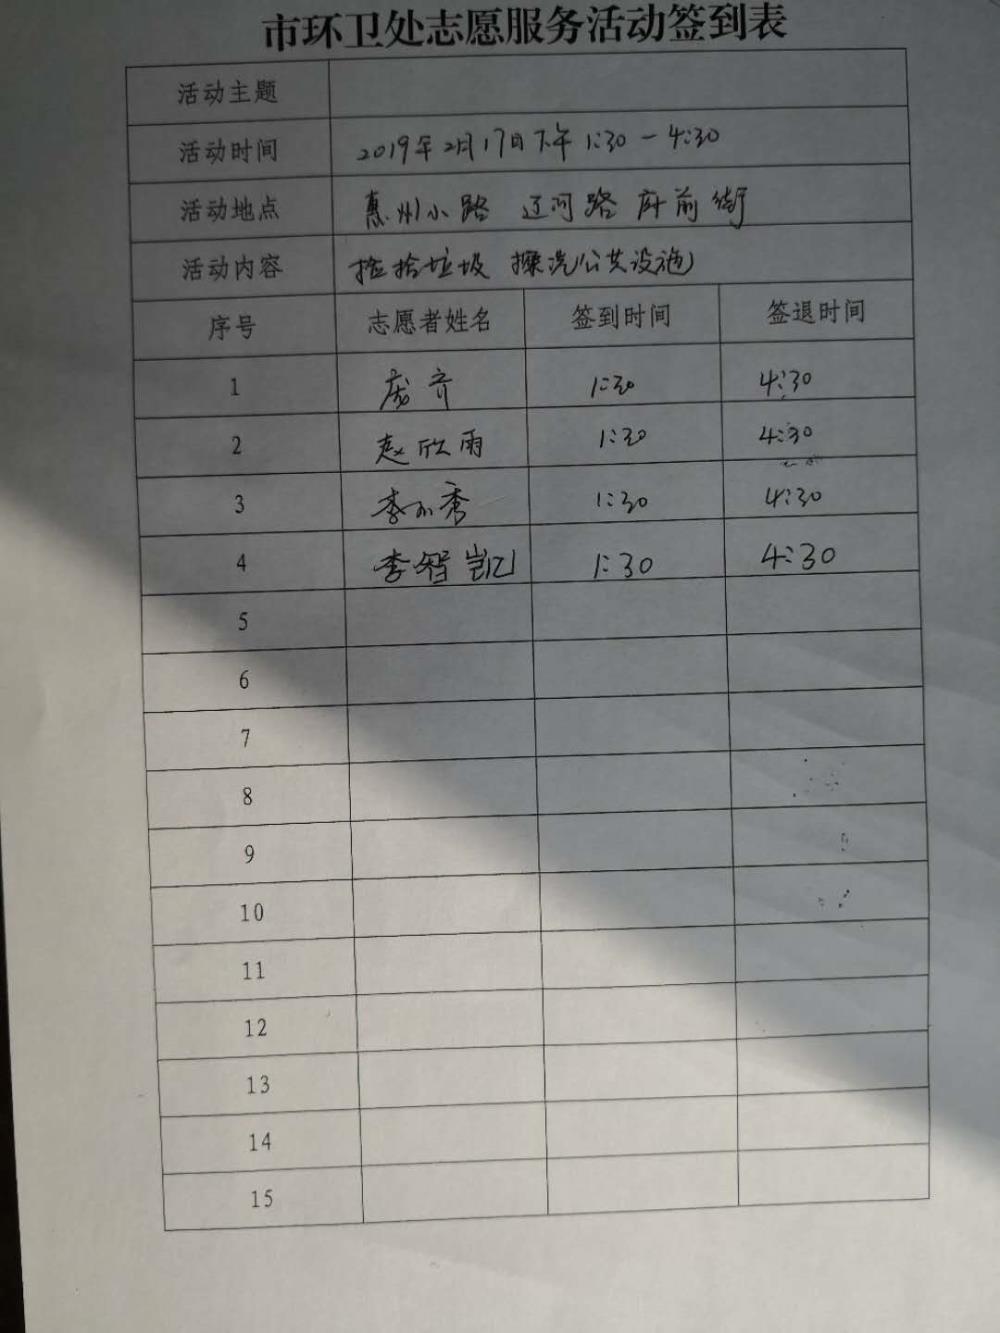 市环卫处志愿服务活动签到表
活动主题
活动时间 2019年2月17日下午 1:30-4:30
活动地点 惠州小路 辽河路 府前街
活动内容 捡拾垃圾 擦洗公共设施
序号 志愿者姓名 签到时间 签退时间
1 庞齐 1:30 4:30
2 赵欣雨 1:30 4:30
3 李 秀 1:30 4:30
4 李智凯 1:30 4:30
5
6
7
8
9
10
11
12
13
14
15